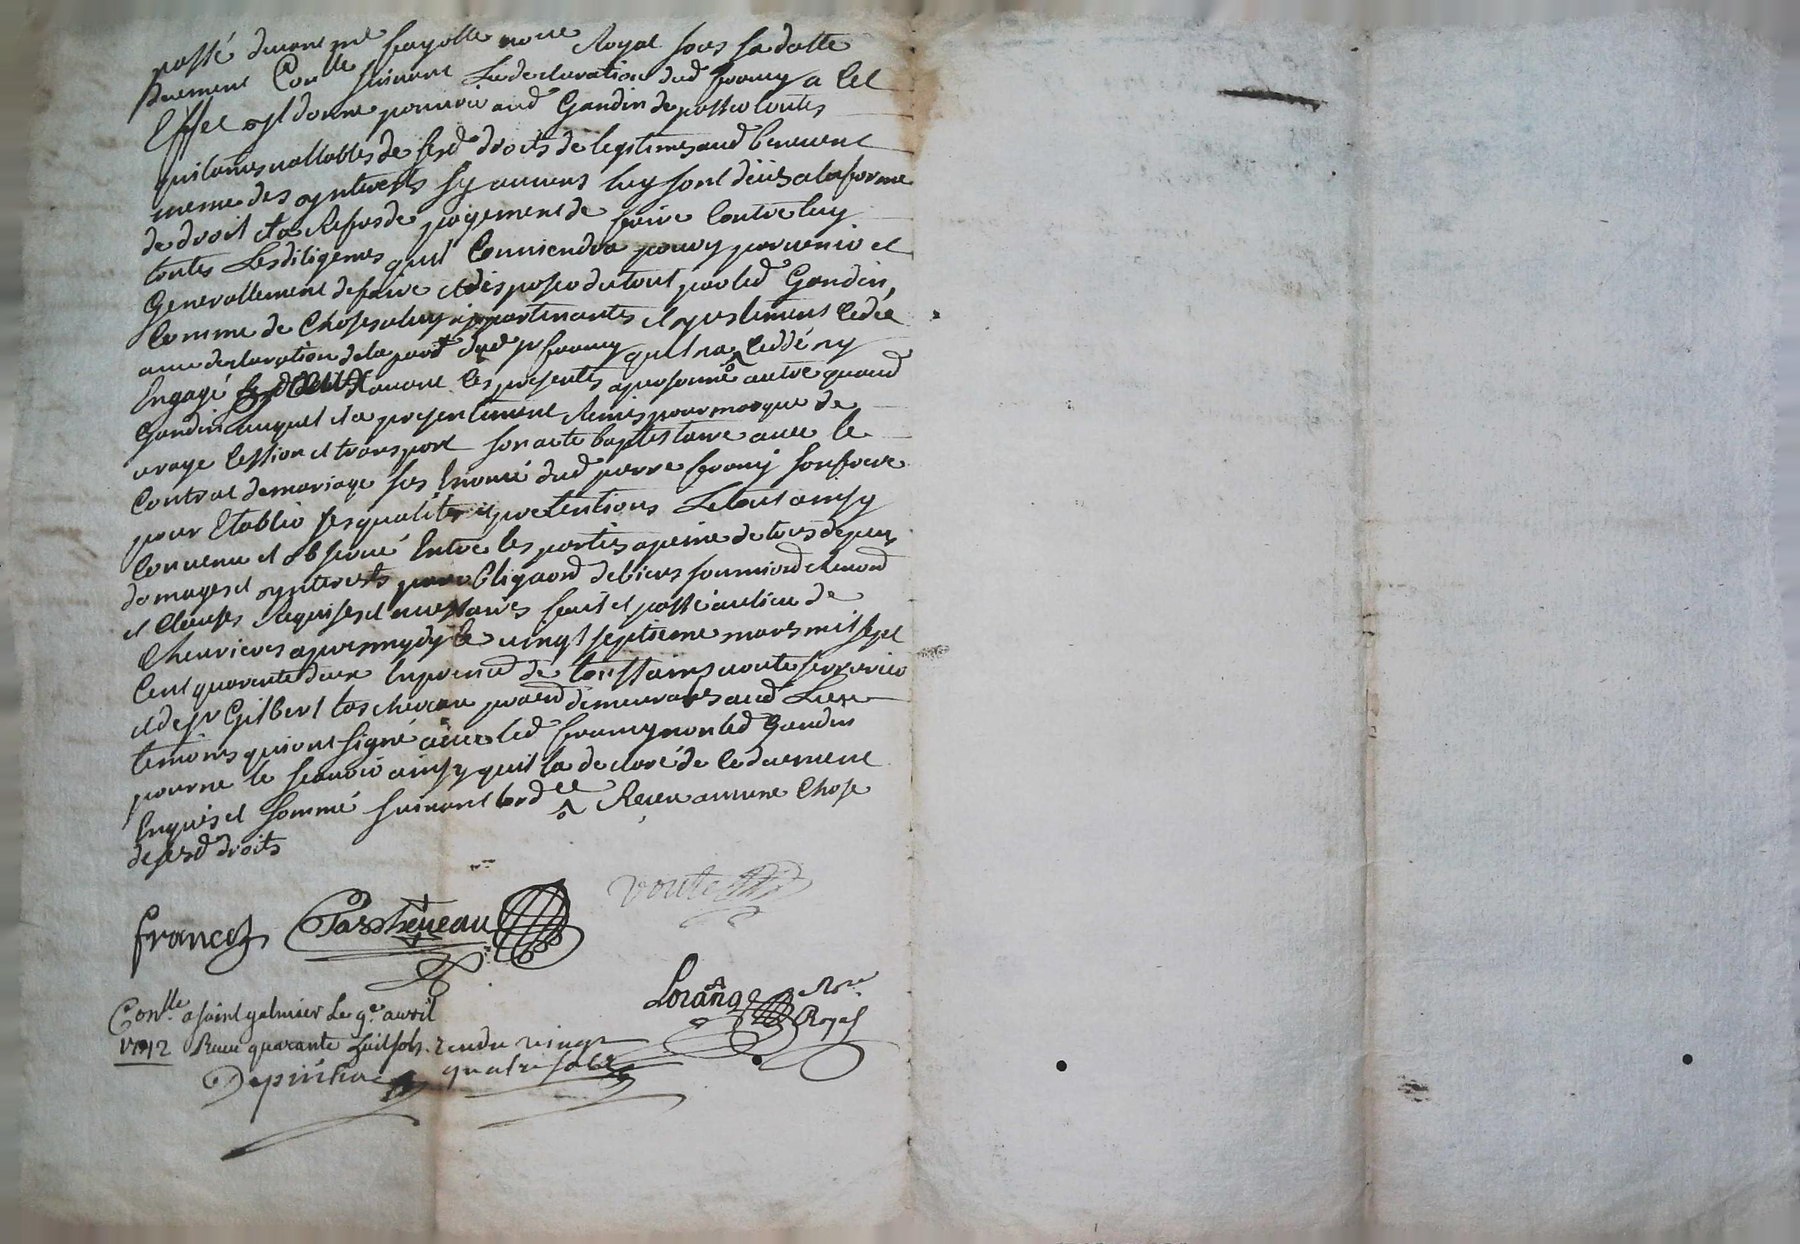 passé devant me fayolle no.re Royal sous sa datte
duement Con.lle suivant La declaration dud francey a Cet
Effet ayt donne pouvoir aud Gandin de passer toutes
quitances vallables de sesd droits de legitimes aud benevent
meme des ynterests sy aucuns luy sont deües a la forme
de droit et a Refus de payement de faire Contre luy
toutes Les diligences quil Conviendra pour y parvenir et
Generallement de faire et disposer du tout par led Gandin,
Comme de Choses a luy appartenantes et justement Cedée
avec declaration de la part dud sr francey quil na Ceddé ny
Engagé avant les presentes a personne autre quaud
Gandin auquel il a presentement Remis pour marque de
vraye Cession et transport son acte baptistaire avec le
Contrat de mariage sus Enoncé dud pierre francey son frere
pour Etablir ses qualités et pretentions Le tout ainsy
Convenu et observé Entre les parties a peine de tous depens
domages et ynterests par obligaon de biens soumiond Renond
et Clauses Requises et necessaires fait et passé au lieu de
Chevrieres apres mydy le vingt septieme mars mil sept
Cent quarante deux En presence de toussaint voute serrurier
et de sr Gilbert taschereau praen demeurants aud Lieu
temoins qui ont signé avec led francey non led Gandin
pour ne le scavoir ainsy quil la declaré de Ce duement
Enquis et sommé suivant lord.ce Receu aucune Chose
de sesd droits
francey Taschereau voute
Lorange No.re
Royal
Con.lle a saint galmier Le 9.e avril
1742 Receu quarante huit sols. rendu vingt
quatre sols